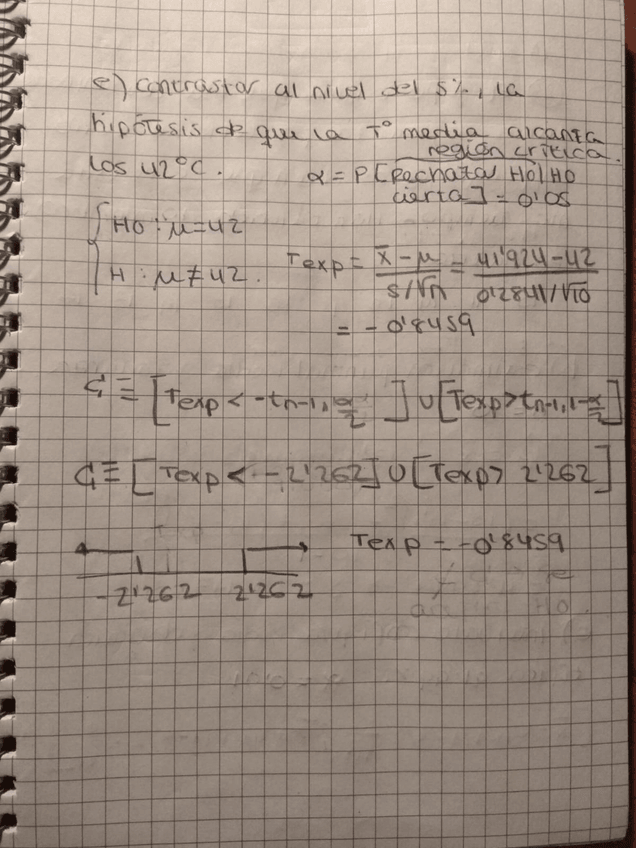 e) contrastar al nivel del 5%, la
hipótesis de que la Tº media alcanza
los 42ºC.
región crítica.
α = P[Rechazar H0|H0
cierta] = 0'05
H0: μ=42
H: μ≠42.
Texp = x̄-μ / s/√n = 41'924-42 / 0'2841/√10
= -0'8459
C ≡ [Texp < -tn-1, α/2] ∪ [Texp > tn-1, 1-α/2]
C ≡ [Texp < -2'262] ∪ [Texp > 2'262]
Texp = -0'8459
-2'262 2'262